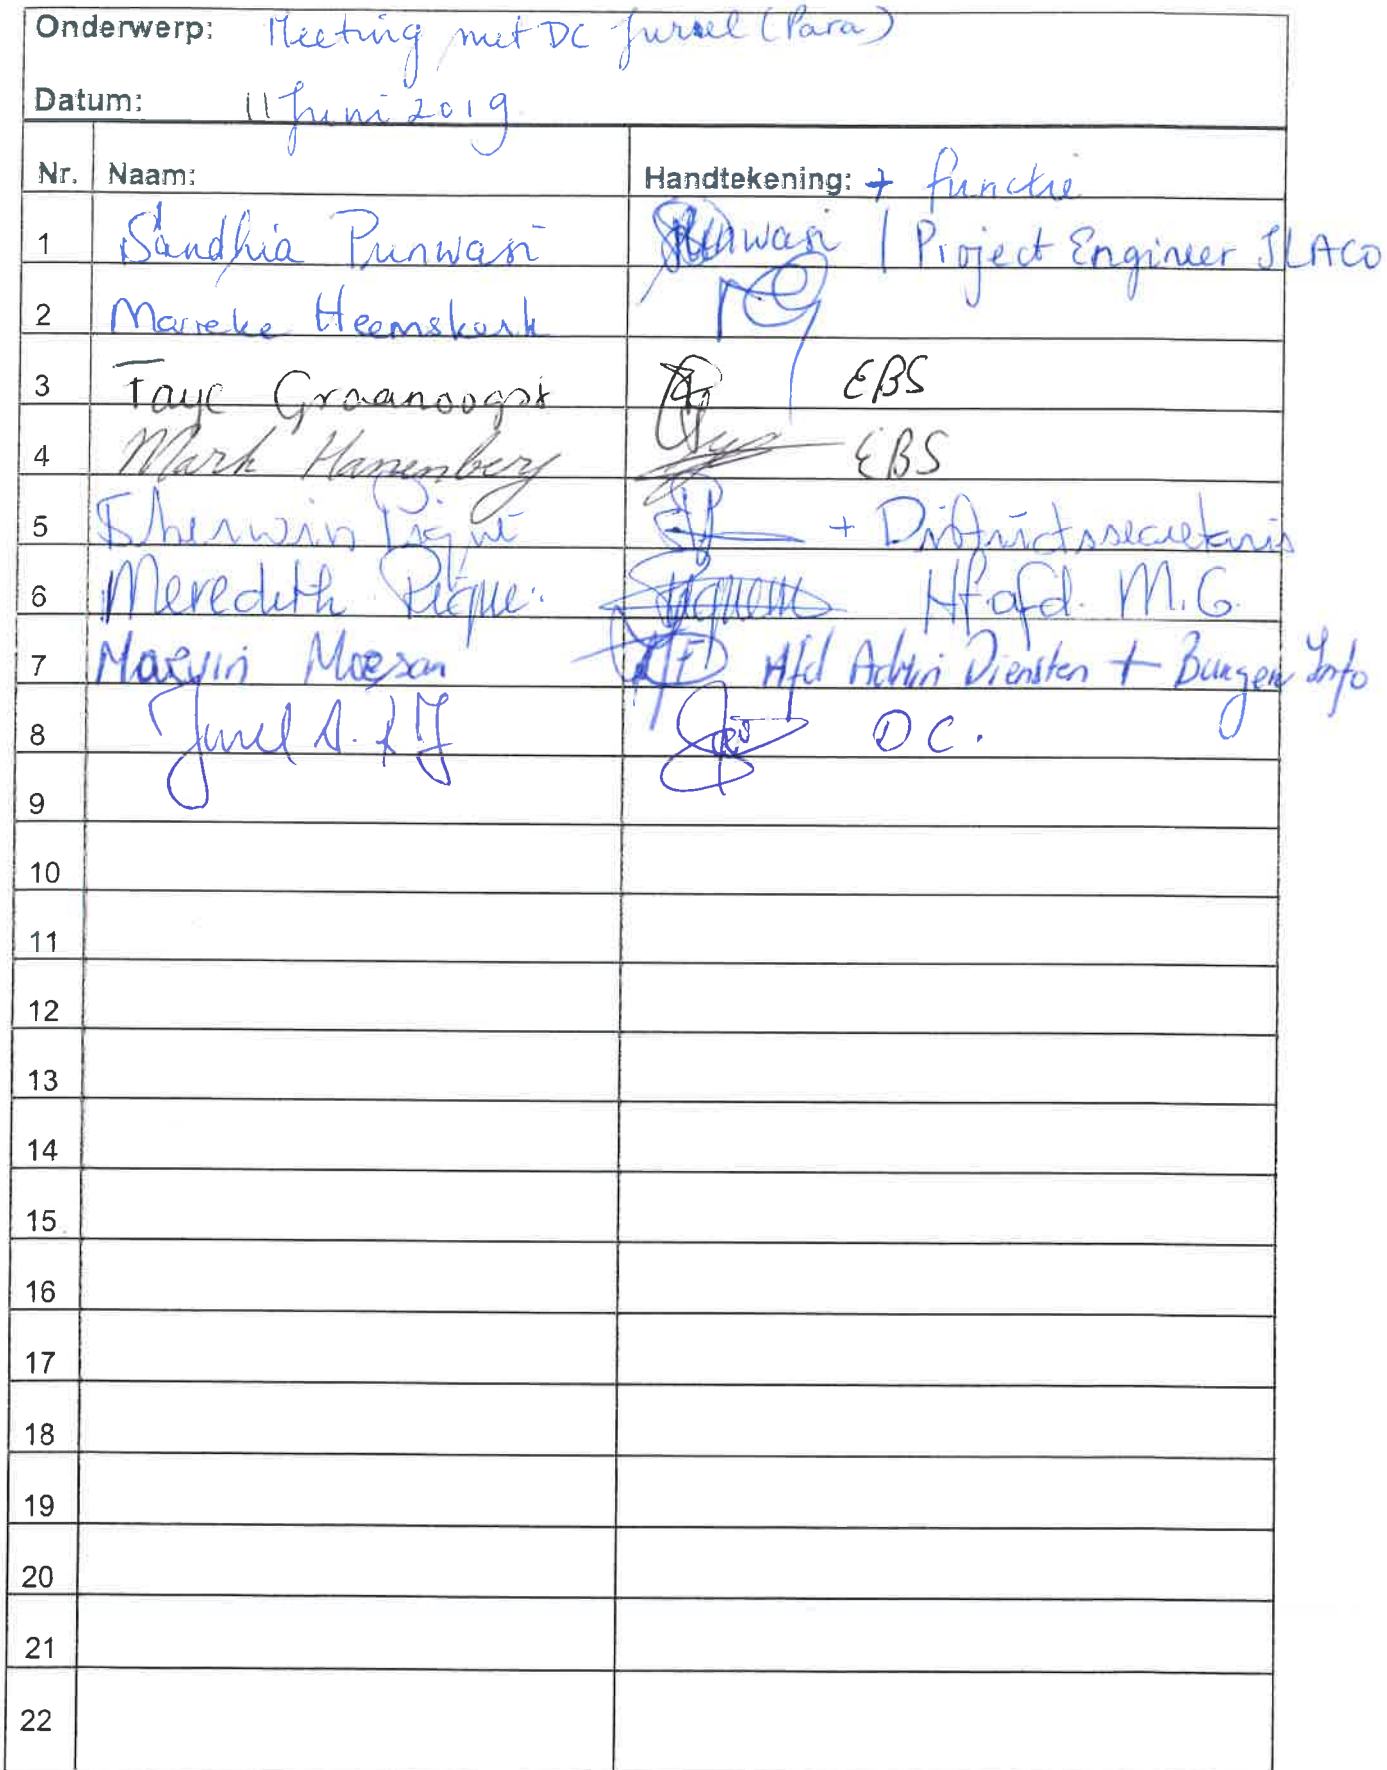 Onderwerp: Meeting met DC Jursel (Para)
Datum: 11 Juni 2019
Nr. Naam: Handtekening: + functie
1 Sandhia Punwasi Punwasi | Project Engineer ILACO
2 Marieke Heemskerk
3 Faye Graanoogst EBS
4 Mark Hanenberg EBS
5 Sherwin Piqué + Districtssecretaris
6 Meredith Pique. Hfafd. M.G.
7 Marvin Moesan Hfd Admin Diensten + Burger Info
8 DC.
9
10
11
12
13
14
15
16
17
18
19
20
21
22